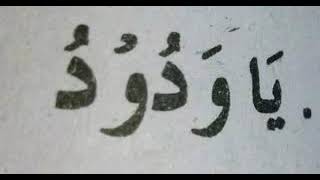 . يَا وَدُوْدُ